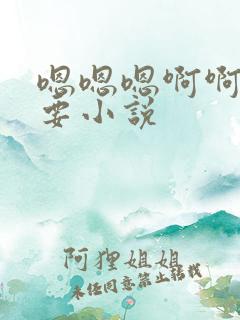 嗯嗯嗯啊啊
要小说
阿狸姐姐
未经同意禁止转载